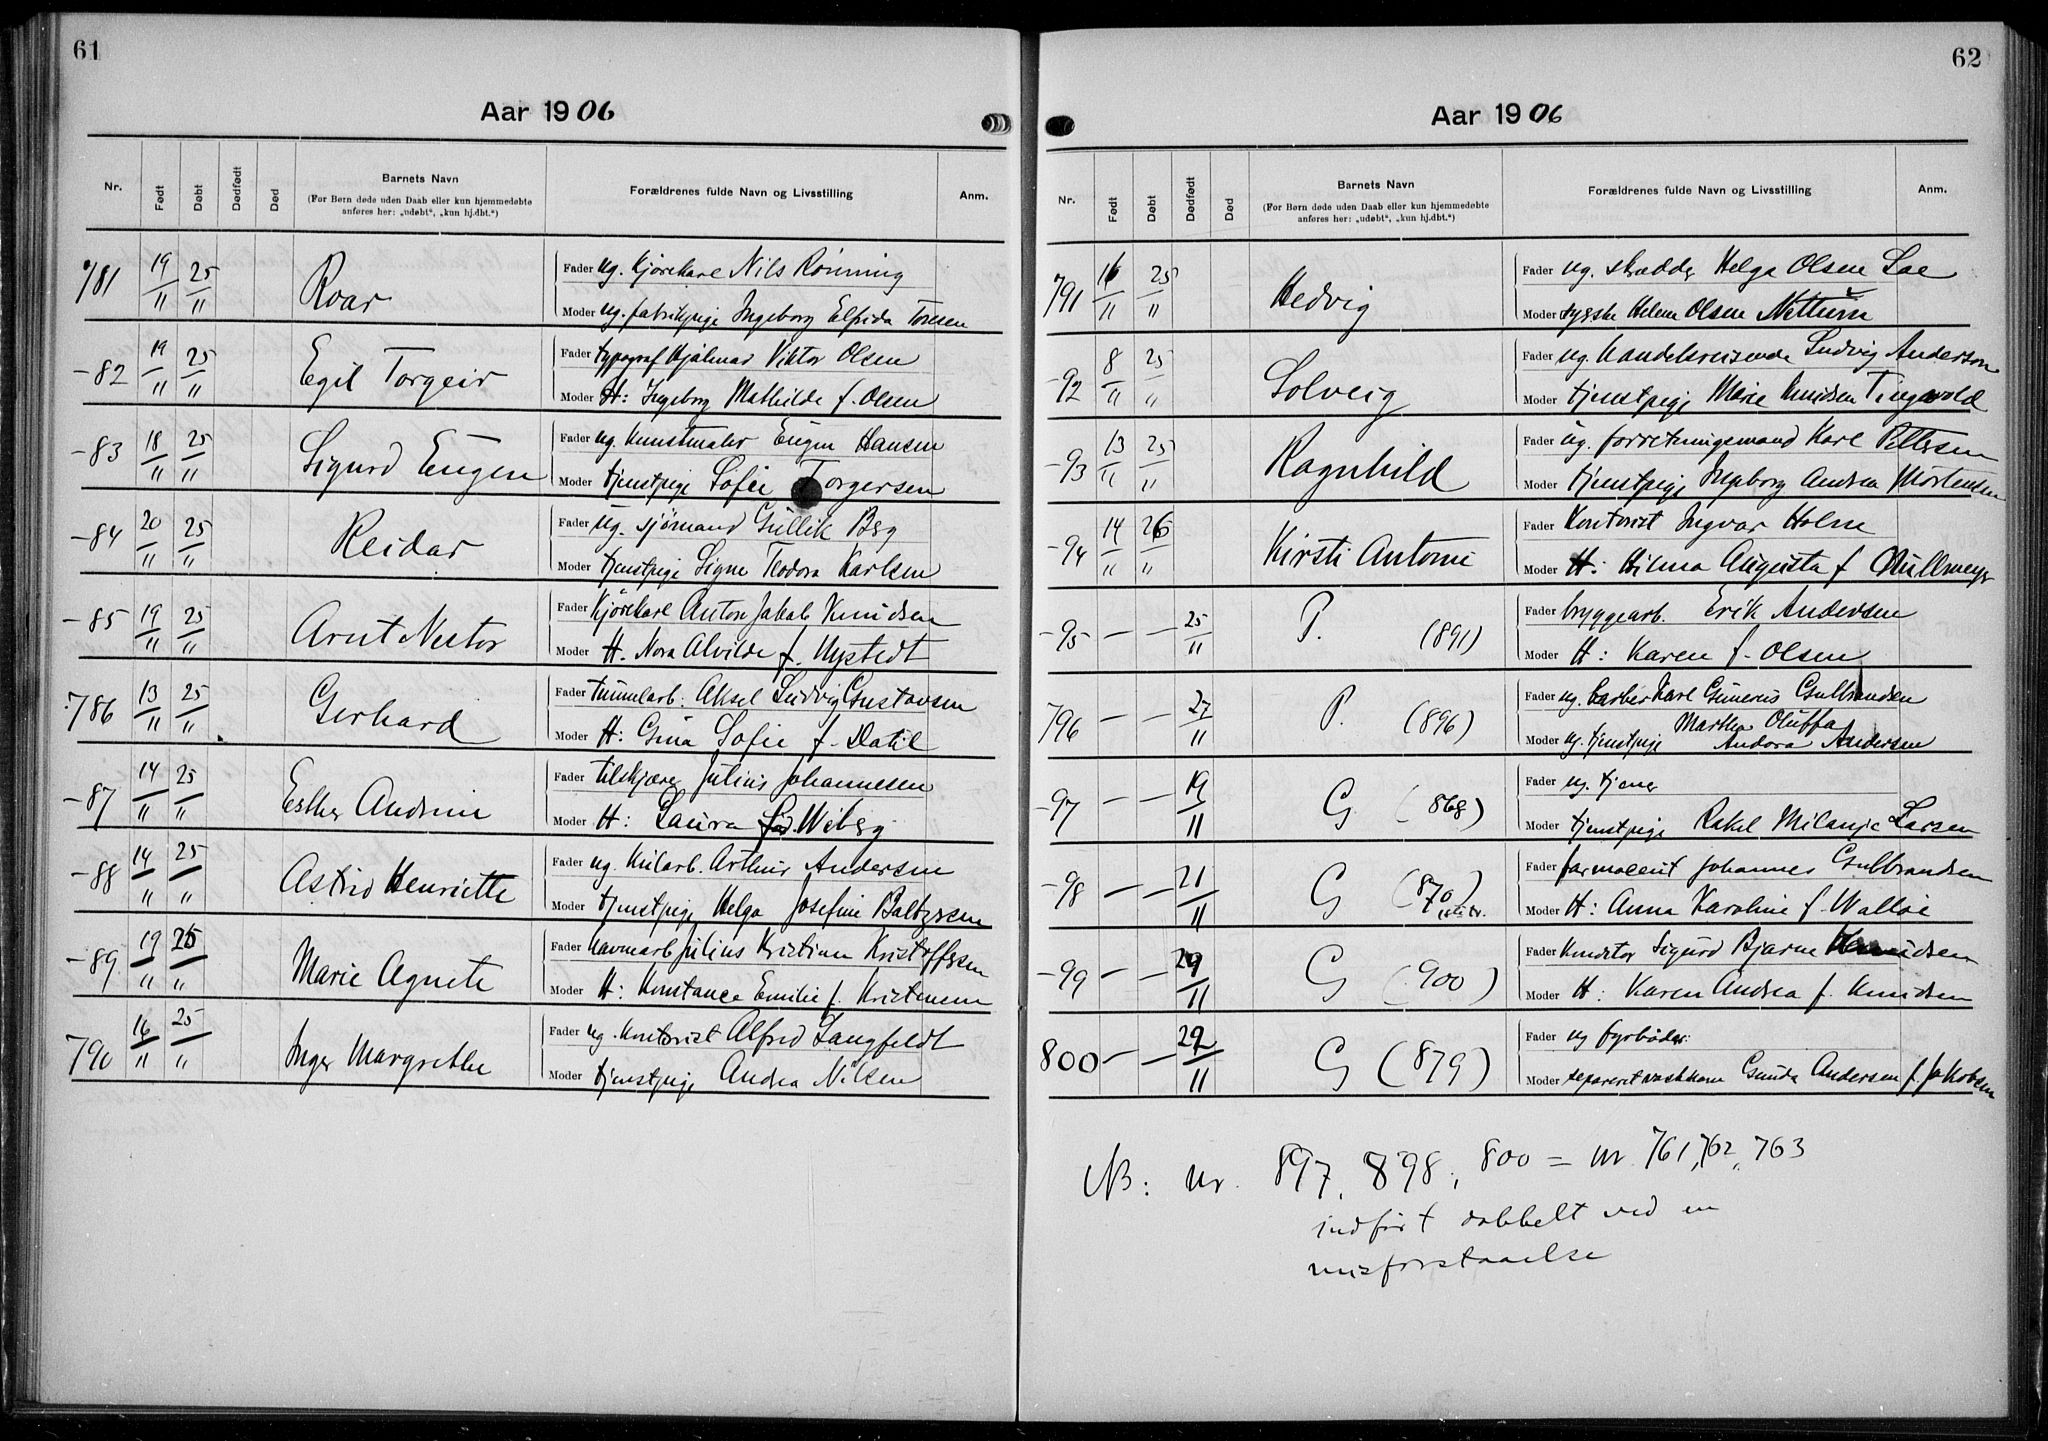 61
Aar 1906
Nr.
Født
Døbt
Dødfødt
Død
Barnets Navn
(For Børn døde uden Daab eller kun hjemmedøbte
anføres her: „udøbt“, „kun hj.dbt.“)
Forældrenes fulde Navn og Livsstilling
Anm.
781 19/11 25/11 Roar
Fader ug. kjørekarl Nils Rønning
Moder ug. fabrikpige Ingeborg Elfrida Toresen
-82 19/11 25/11 Egil Torgeir
Fader typograf Hjalmar Viktor Olsen
Moder H: Ingeborg Mathilde f. Olsen
-83 18/11 25/11 Sigurd Eugen
Fader ug. Kunstmaler Eugen Hansen
Moder tjenstpige Sofie Torgersen
-84 20/11 25/11 Reidar
Fader ug. sjømand Gullik Berg
Moder tjenstpige Signe Teodora Karlsen
-85 19/11 25/11 Arnt Nestor
Fader Kjørekarl Anton Jakob Knudsen
Moder H. Nora Alvilde f. Nystedt
786 13/11 25/11 Gerhard
Fader tunnelarb: Aksel Ludvig Gustavsen
Moder H: Gina Sofie f. Datil
-87 14/11 25/11 Esther Andrine
Fader tilskjærer Julius Johannesen
Moder H: Laura fød Wiberg
-88 14/11 25/11 Astrid Henriette
Fader ug. Kularb. Arthur Andersen
Moder tjenstpige Helga Josefine Baltzersen
-89 19/11 25/11 Marie Agnete
Fader havnearb Julius Kristian Kristoffersen
Moder H: Konstance Emilie f. Kristensen
790 16/11 25/11 Inger Margrethe
Fader ug. Kontorist Alfred Langfeldt
Moder tjenstpige Andrea Nilsen
62
Aar 1906
Nr.
Født
Døbt
Dødfødt
Død
Barnets Navn
(For Børn døde uden Daab eller kun hjemmedøbte
anføres her: „udøbt“, „kun hj.dbt.“)
Forældrenes fulde Navn og Livsstilling
Anm.
791 16/11 25/11 Hedvig
Fader ug. skrædder Helge Olsen Lae
Moder syerske Helene Olsen Nettum
-92 8/11 25/11 Solveig
Fader ug. Handelsreisende Ludvig Anderson
Moder tjenstpige Marie Knudsen Tingvold
-93 13/11 25/11 Ragnhild
Fader ug. forretningsmand Karl Pettersen
Moder tjenstpige Ingeborg Andrea Mortensen
-94 14/11 26/11 Kirsti Antonie
Fader Kontorist Ingvar Holm
Moder H: Hilma Augusta f.
-95 — — 25/11 P. (891)
Fader bryggearb. Erik Andersen
Moder H: Karen f. Olsen
796 — — 27/11 P. (896)
Fader ug. barber Karl Gunerius Gulbrandsen
Martha Oluffa
Moder ug. tjenstpige Andora Andersen
-97 — — 19/11 G (868)
Fader ug. tjener
Moder tjenstpige Rakel Milanje Larsen
-98 — — 21/11 G (870)
Fader farmaceut Johannes Gulbrandsen
Moder H: Anna Karoline f. Walløe
-99 — — 29/11 G (900)
Fader Konditor Sigurd Bjarne Knudsen
Moder H: Karen Andrea f. Knudsen
800 — — 22/11 G (879)
Fader ug fyrbøder:
Moder separeret vaskekone Gunda Andersen f. Jakobsen
NB: nr. 897, 898, 800 = nr. 761, 762, 763
indført dobbelt ved en
misforstaaelse